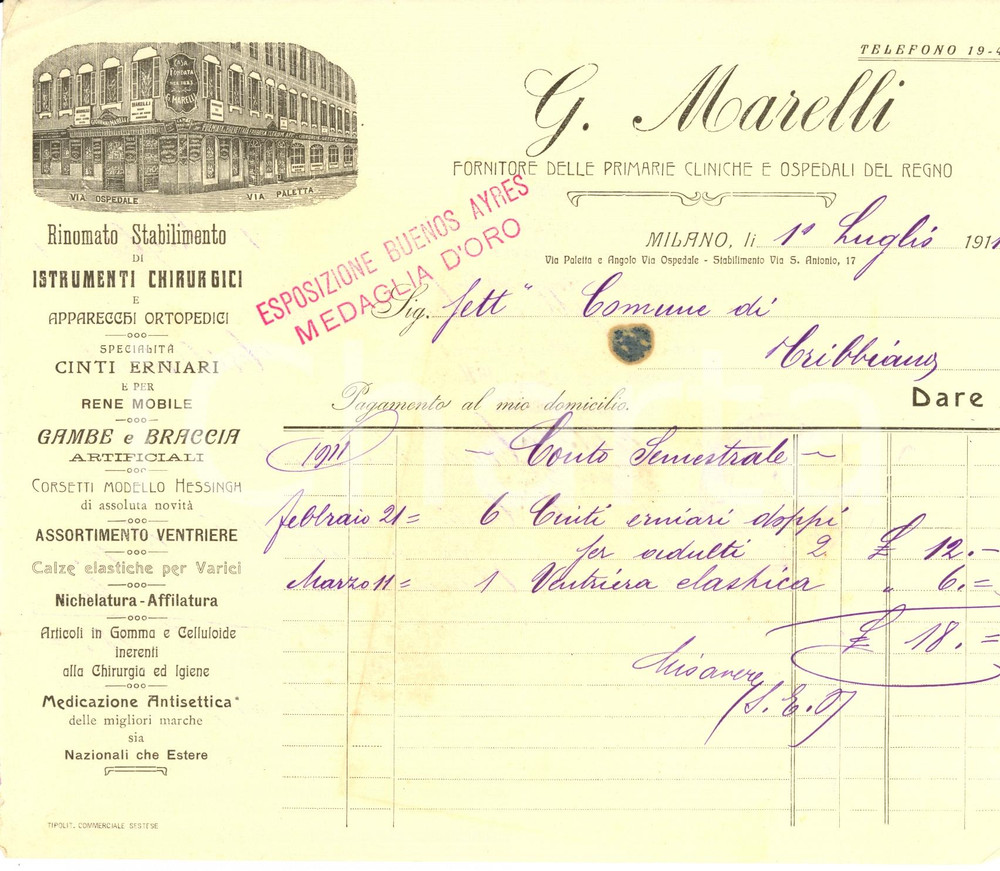 TELEFONO 19-4
G. Marelli
FORNITORE DELLE PRIMARIE CLINICHE E OSPEDALI DEL REGNO
CASA
FONDATA
G. MARELLI
MARELLI
VIA OSPEDALE
VIA PALETTA
ESPOSIZIONE BUENOS AYRES
MEDAGLIA D'ORO
MILANO, li 1° Luglio 1911
Via Paletta e Angolo Via Ospedale - Stabilimento Via S. Antonio, 17
Sig. Sett" Comune di
Tribbiano
Pagamento al mio domicilio.
Dare
1911 - Conto Semestrale -
febbraio 21 = 6 Cinti erniari doppi
per adulti 2 £ 12.-
Marzo 11 = 1 Ventriera elastica " 6.=
£ 18.=
(S. E. O)
Rinomato Stabilimento
DI
ISTRUMENTI CHIRURGICI
E
APPARECCHI ORTOPEDICI
SPECIALITÀ
CINTI ERNIARI
E PER
RENE MOBILE
GAMBE e BRACCIA
ARTIFICIALI
CORSETTI MODELLO HESSINGH
di assoluta novità
ASSORTIMENTO VENTRIERE
Calze elastiche per Varici
Nichelatura-Affilatura
Articoli in Gomma e Celluloide
inerenti
alla Chirurgia ed Igiene
Medicazione Antisettica
delle migliori marche
sia
Nazionali che Estere
TIPOLIT. COMMERCIALE SESTESE